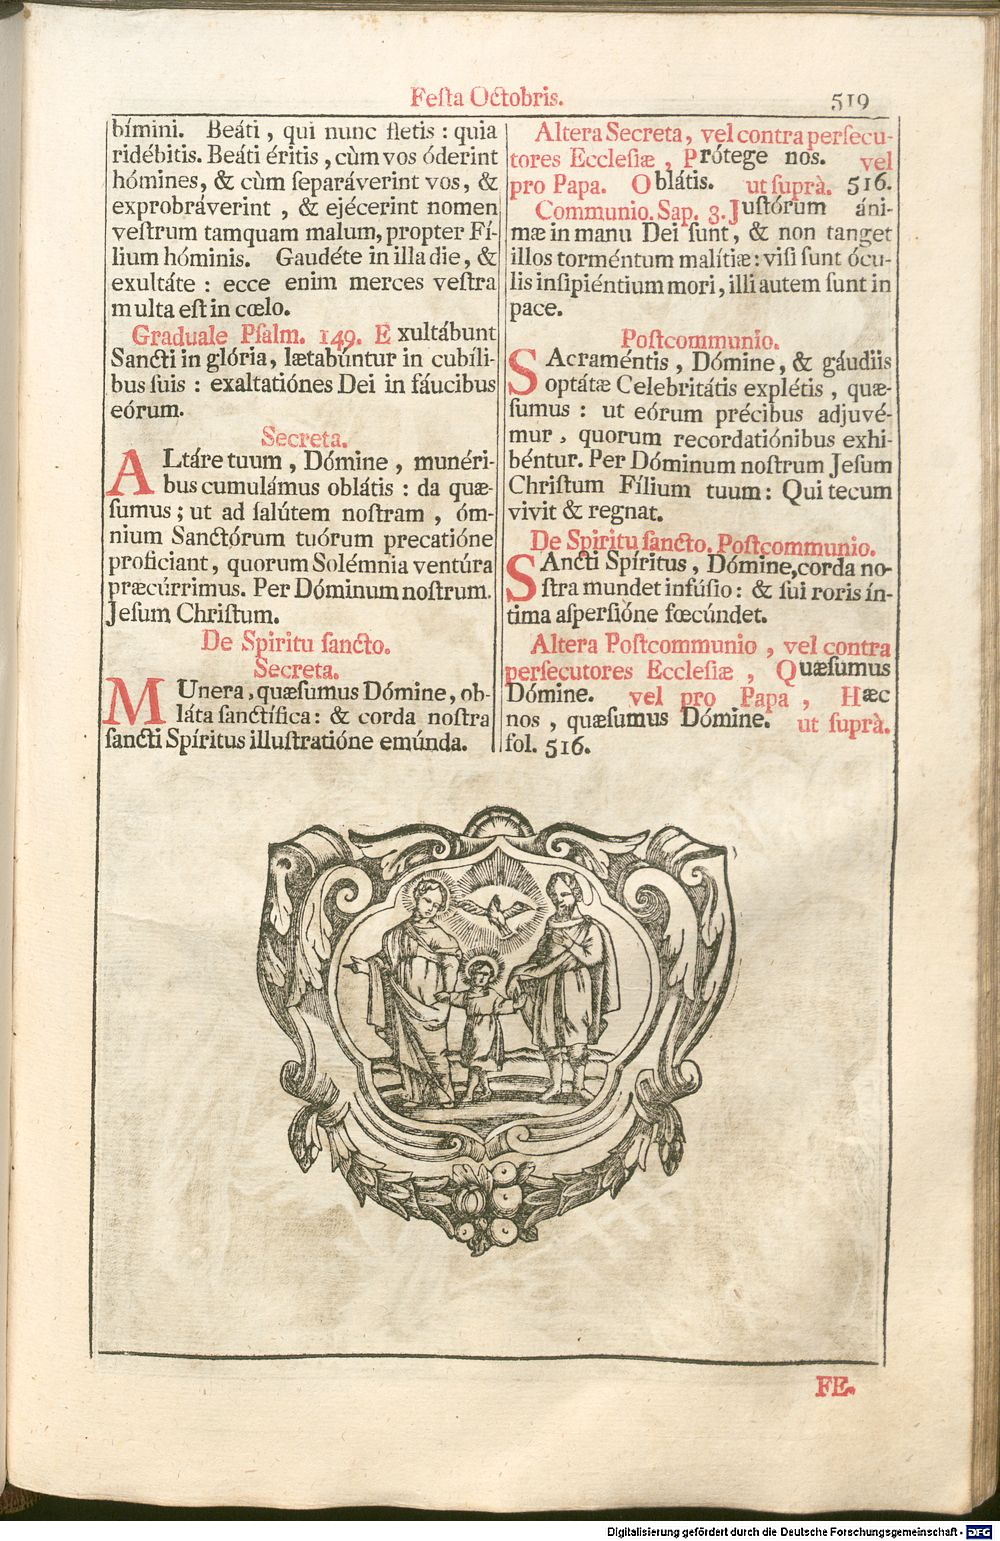 Feſta Octobris.
519
bímini. Beáti, qui nunc fletis : quia
ridébitis. Beáti éritis, cùm vos óderint
hómines, & cùm ſeparáverint vos, &
exprobráverint , & ejécerint nomen
veſtrum tamquam malum, propter Fí-
lium hóminis. Gaudéte in illa die, &
exultáte : ecce enim merces veſtra
multa eſt in cœlo.
Graduale Pſalm. 149. Exultábunt
Sancti in glória, lætabúntur in cubíli-
bus ſuis : exaltatiónes Dei in fáucibus
eórum.
Secreta.
ALtáre tuum, Dómine, munéri-
bus cumulámus oblátis : da quæ-
ſumus ; ut ad ſalútem noſtram, óm-
nium Sanctórum tuórum precatióne
proficiant, quorum Solémnia ventúra
præcúrrimus. Per Dóminum noſtrum.
Jeſum Chriſtum.
De Spiritu ſancto.
Secreta.
MUnera, quæſumus Dómine, ob-
láta ſanctífica: & corda noſtra
ſancti Spíritus illuſtratióne emúnda.
Altera Secreta, vel contra perſecu-
tores Eccleſiæ, Prótege nos. vel
pro Papa. Oblátis. ut ſuprà. 516.
Communio. Sap. 3. Juſtórum áni-
mæ in manu Dei ſunt, & non tanget
illos torméntum malítiæ: viſi ſunt ócu-
lis inſipiéntium mori, illi autem ſunt in
pace.
Poſtcommunio.
SAcraméntis, Dómine, & gáudiis
optátæ Celebritátis explétis, quæ-
ſumus : ut eórum précibus adjuvé-
mur, quorum recordatiónibus exhi-
béntur. Per Dóminum noſtrum Jeſum
Chriſtum Fílium tuum: Qui tecum
vivit & regnat.
De Spiritu ſancto. Poſtcommunio.
SAncti Spíritus, Dómine, corda no-
ſtra mundet infúſio: & ſui roris ín-
tima aſperſióne fœcúndet.
Altera Poſtcommunio, vel contra
perſecutores Eccleſiæ, Quæſumus
Dómine. vel pro Papa, Hæc
nos, quæſumus Dómine. ut ſuprà.
fol. 516.
FE.
Digitalisierung gefördert durch die Deutsche Forschungsgemeinschaft - DFG